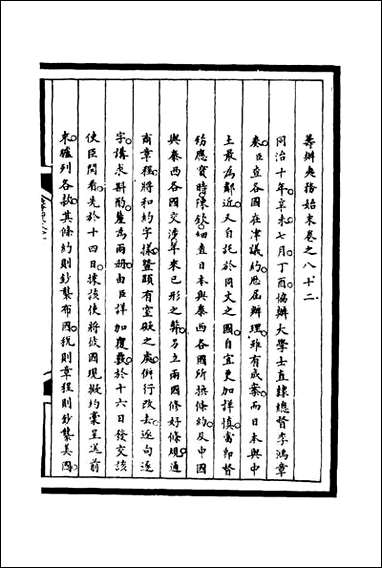 籌辦夷務始末卷之八十二
同治十年辛未七月丁酉協辦大學士直隸總督李鴻章
奏臣查各國在津議約悉屆辦理雖有成案而日本與中
土最為鄰近又自託於同文之國自宜更加詳慎當即督
飭應寶時陳欽細查日本與泰西各國所換條約及中國
與泰西各國交涉年來已形之弊另立兩國修好條規通
商章程將和約字樣暨顯有窒礙之處併行改去逐句逐
字講求斟酌釐為兩冊由臣詳加覆覈於十六日發交該
使臣閱看先於十四日據該使將彼國現擬約稾呈送前
來臚列各款其條約則鈔襲布國稅則章程則鈔襲美國